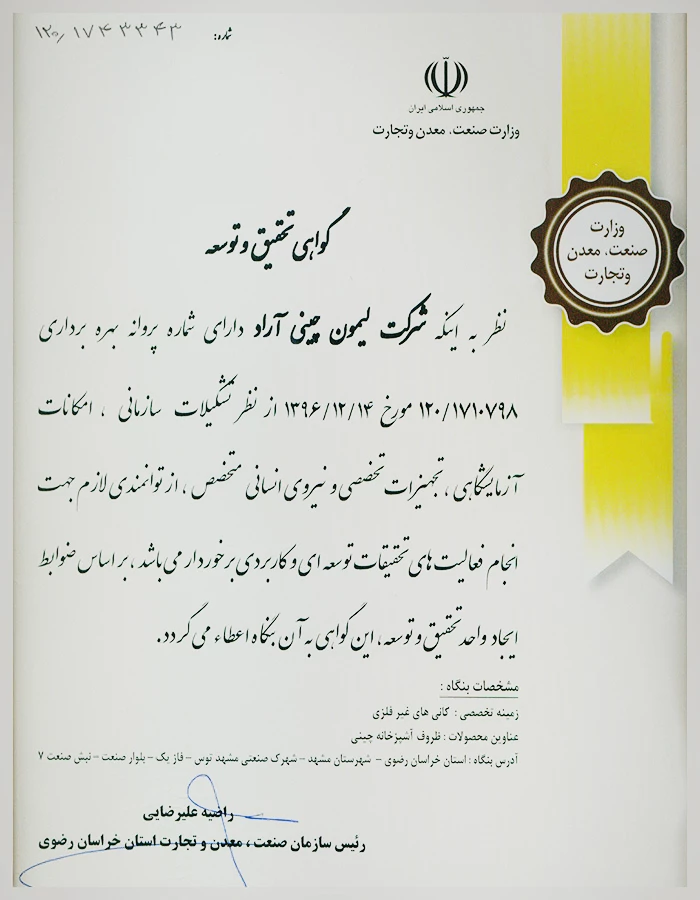 شماره: ۱۲۰/۱۷۴۳۳۴۳
جمهوری اسلامی ایران
وزارت صنعت، معدن وتجارت
وزارت
صنعت، معدن
وتجارت
گواهی تحقیق و توسعه
نظر به اینکه شرکت لیمون چینی آراد دارای شماره پروانه بهره برداری
۱۲۰/۱۷۱۰۷۹۸ مورخ ۱۳۹۶/۱۲/۱۴ از نظر تشکیلات سازمانی ، امکانات
آزمایشگاهی ، تجهیزات تخصصی و نیروی انسانی متخصص ، از توانمندی لازم جهت
انجام فعالیت های تحقیقات توسعه ای و کاربردی برخوردار می باشد ، بر اساس ضوابط
ایجاد واحد تحقیق و توسعه، این گواهی به آن بنگاه اعطاء می گردد.
مشخصات بنگاه :
زمینه تخصصی : کانی های غیر فلزی
عناوین محصولات : ظروف آشپزخانه چینی
آدرس بنگاه : استان خراسان رضوی - شهرستان مشهد - شهرک صنعتی مشهد توس - فاز یک - بلوار صنعت - نبش صنعت ۷
راضیه علیرضایی
رئیس سازمان صنعت ، معدن و تجارت استان خراسان رضوی